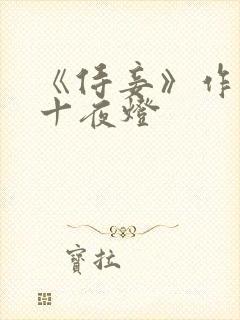 《侍妾》作
十夜燈
寶拉